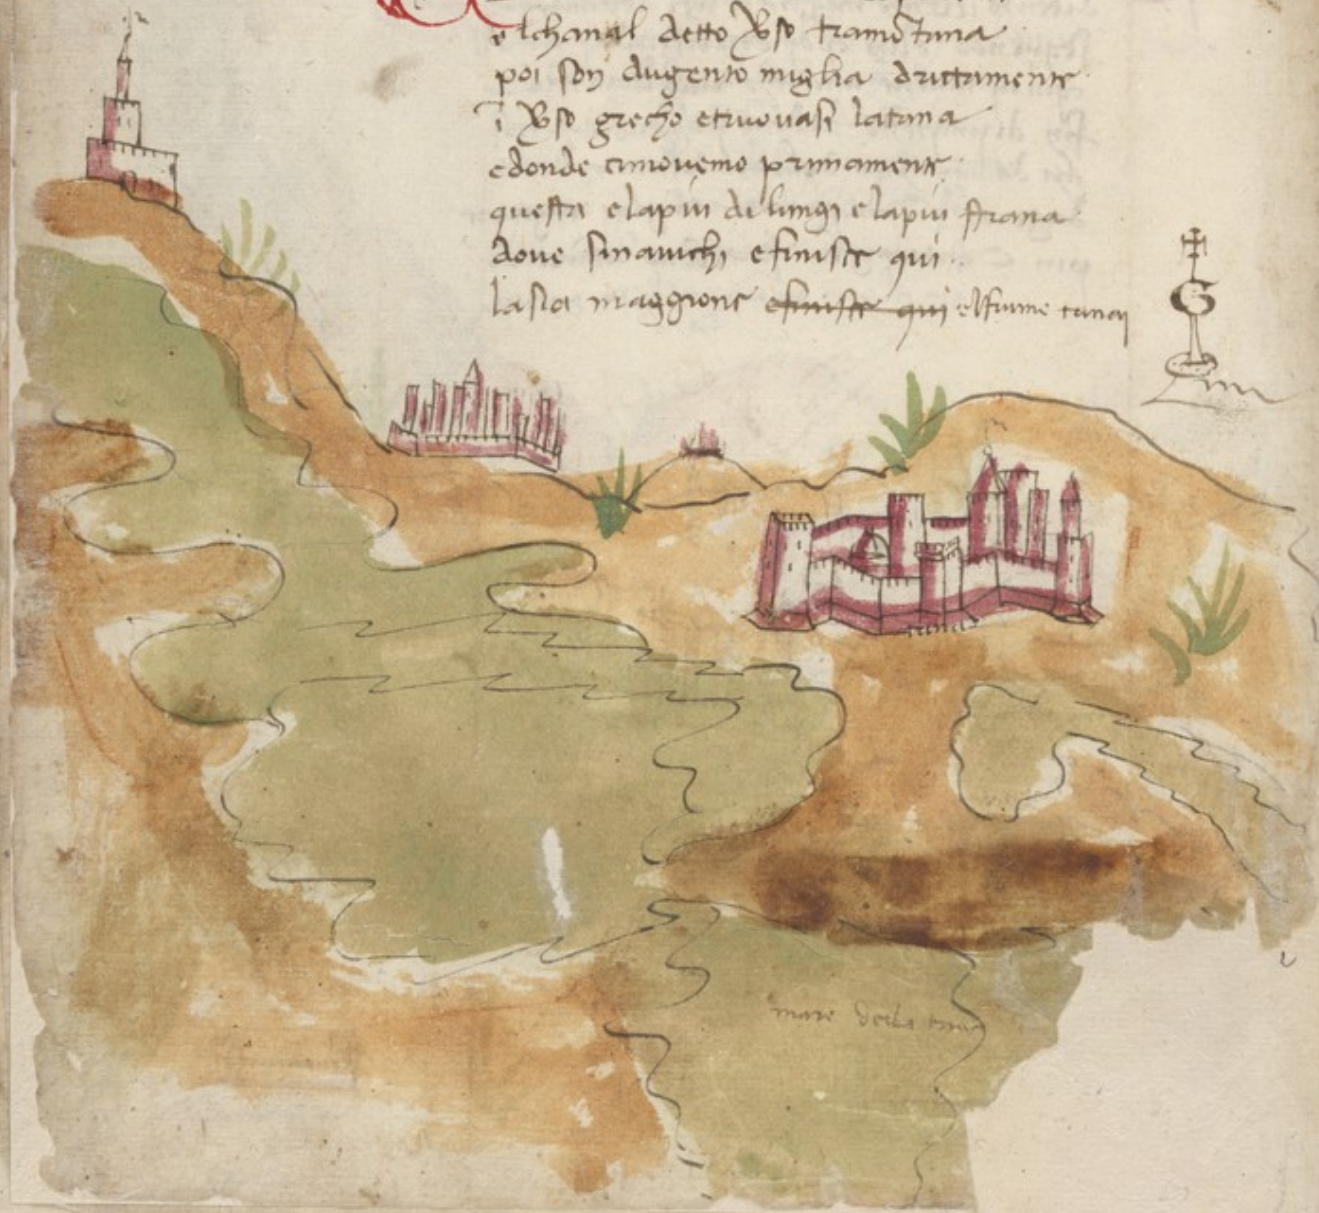 e lchanal detto v̄so tramōtana
poi son dugento miglia drittamente
ī v̄so grecho etruovasi latana
edonde cimovemo primamente
questa elapiu di lungi elapiu strana
dove sinavichi efinisce qui
lasia maggiore efinisce qui elfiume tanai
mare della tana